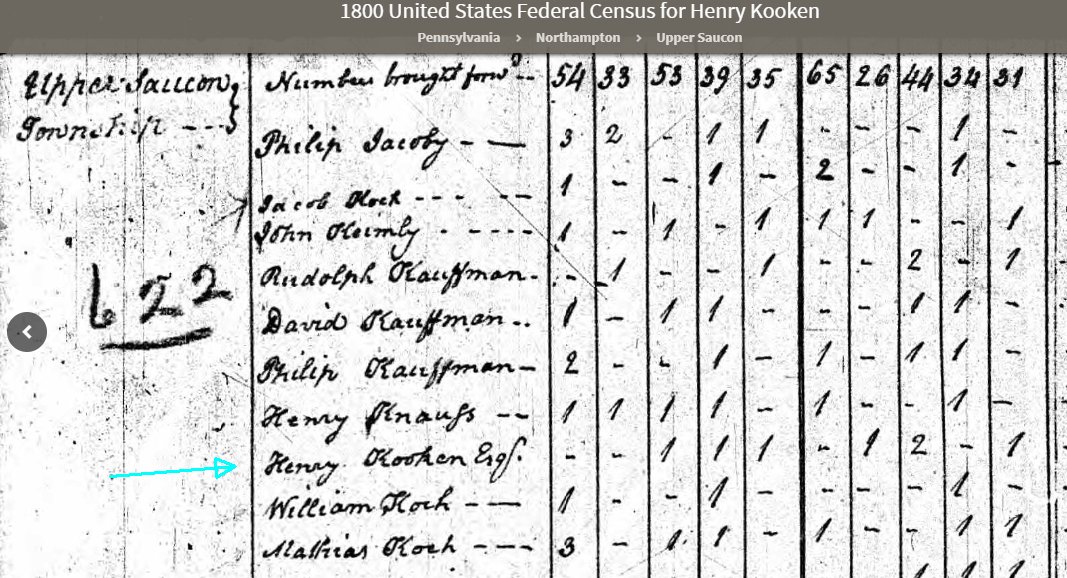 1800 United States Federal Census for Henry Kooken
Pennsylvania > Northampton > Upper Saucon
Upper Saucon Numbers brought forwd -- 54 33 53 39 35 65 26 44 34 31
Township ---
Philip Jacoby - — 3 2 - 1 1 - - - 1 -
Jacob Koch --- -- 1 - - 1 - 2 - - 1 -
John Keimly - ---- 1 - 1 - 1 1 1 - - 1
Rudolph Kauffman - - 1 - - 1 - - 2 - 1
622
David Kauffman -- 1 - 1 1 - - - 1 1 -
Philip Kauffman - 2 - - 1 - 1 - 1 1 -
Henry Knauss -- 1 1 1 1 - 1 - - 1 -
Henry Kooken Esqr. - - 1 1 1 - 1 2 - 1
William Koch - — 1 - - 1 - - - - 1 -
Mathias Koch --- 3 - 1 1 - 1 - - 1 1